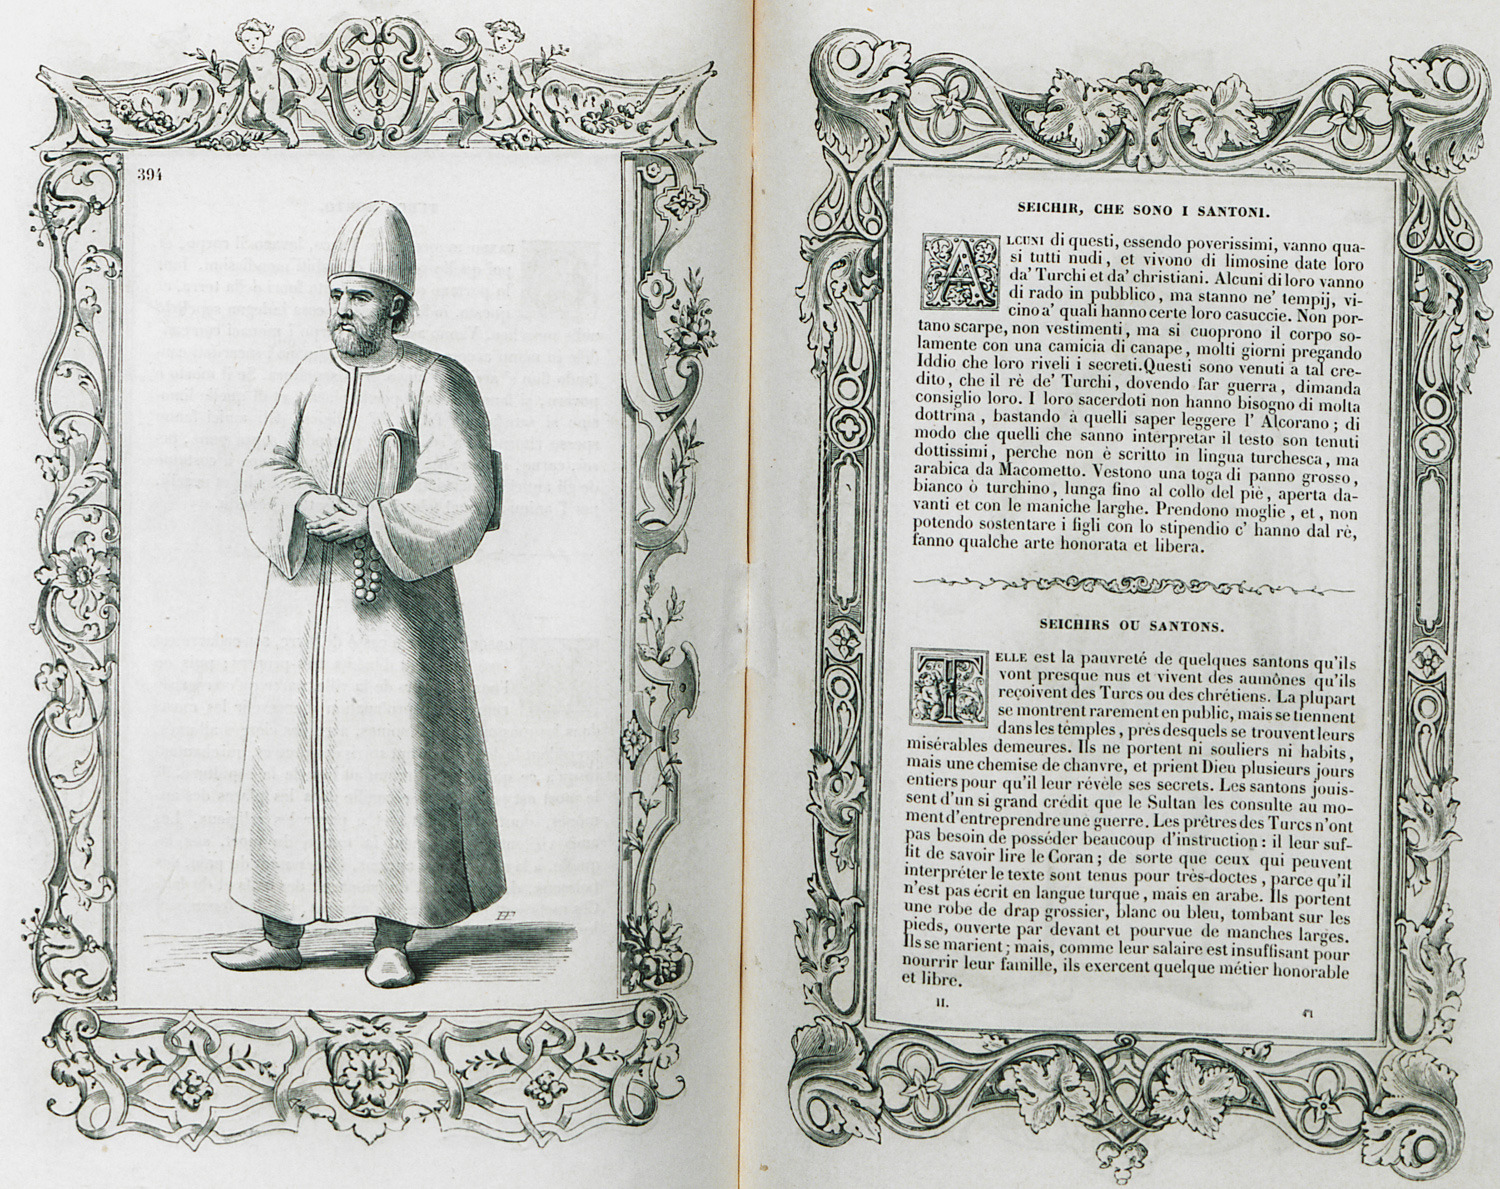 394
EF
SEICHIR, CHE SONO I SANTONI.
ALCUNI di questi, essendo poverissimi, vanno qua-
si tutti nudi, et vivono di limosine date loro
da' Turchi et da' christiani. Alcuni di loro vanno
di rado in pubblico, ma stanno ne' tempij, vi-
cino a' quali hanno certe loro casuccie. Non por-
tano scarpe, non vestimenti, ma si cuoprono il corpo so-
lamente con una camicia di canape, molti giorni pregando
Iddio che loro riveli i secreti. Questi sono venuti a tal cre-
dito, che il rè de' Turchi, dovendo far guerra, dimanda
consiglio loro. I loro sacerdoti non hanno bisogno di molta
dottrina, bastando à quelli saper leggere l' Alcorano; di
modo che quelli che sanno interpretar il testo son tenuti
dottissimi, perche non è scritto in lingua turchesca, ma
arabica da Macometto. Vestono una toga di panno grosso,
bianco ò turchino, lunga fino al collo del piè, aperta da-
vanti et con le maniche larghe. Prendono moglie, et, non
potendo sostentare i figli con lo stipendio c' hanno dal rè,
fanno qualche arte honorata et libera.
SEICHIRS OU SANTONS.
TELLE est la pauvreté de quelques santons qu'ils
vont presque nus et vivent des aumônes qu'ils
reçoivent des Turcs ou des chrétiens. La plupart
se montrent rarement en public, mais se tiennent
dans les temples, près desquels se trouvent leurs
misérables demeures. Ils ne portent ni souliers ni habits,
mais une chemise de chanvre, et prient Dieu plusieurs jours
entiers pour qu'il leur révèle ses secrets. Les santons jouis-
sent d'un si grand crédit que le Sultan les consulte au mo-
ment d'entreprendre une guerre. Les prêtres des Turcs n'ont
pas besoin de posséder beaucoup d'instruction: il leur suf-
fit de savoir lire le Coran; de sorte que ceux qui peuvent
interpréter le texte sont tenus pour très-doctes, parce qu'il
n'est pas écrit en langue turque, mais en arabe. Ils portent
une robe de drap grossier, blanc ou bleu, tombant sur les
pieds, ouverte par devant et pourvue de manches larges.
Ils se marient; mais, comme leur salaire est insuffisant pour
nourrir leur famille, ils exercent quelque métier honorable
et libre.
II.